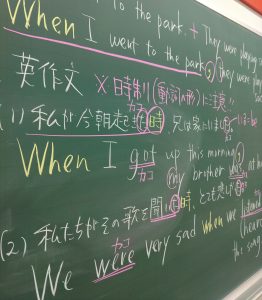 to the park. + They were playing
When I went to the park, they were
英作文 ※日時制(動詞の形)に注意!!
(1) 私が今朝起きた時、兄は家にいました。
カコ
When I got up this morning,
カコ
my brother was at
(2) 私たちがその歌を聞いた時、とても悲し
カコ
We were very sad when we listened
the song.